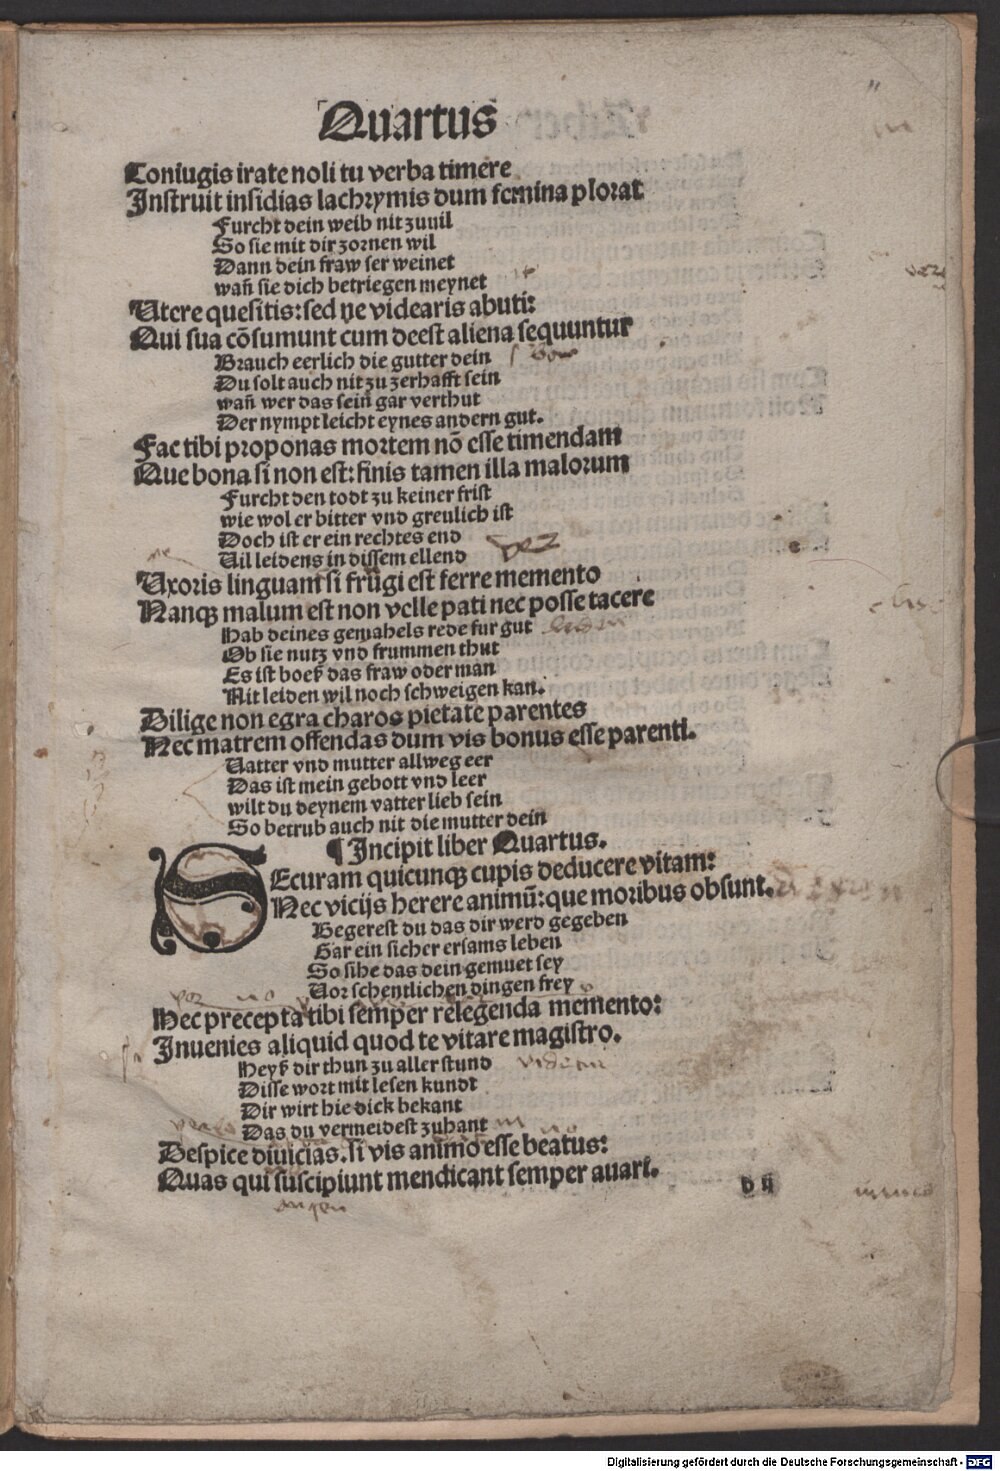 Quartus
Coniugis irate noli tu verba timere
Instruit insidias lachrymis dum femina plorat
Furcht dein weib nit zuuil
So sie mit dir zornen wil
Dann dein fraw ser weinet
wañ sie dich betriegen meynet
Utere quesitis: sed ne videaris abuti:
Qui sua cõsumunt cum deest aliena sequuntur
Brauch eerlich die gutter dein
Du solt auch nit zu zerhafft sein
wañ wer das sein gar verthut
Der nympt leicht eynes andern gut.
Fac tibi proponas mortem nõ esse timendam
Que bona si non est: finis tamen illa malorum
Furcht den todt zu keiner frist
wie wol er bitter vnd greulich ist
Doch ist er ein rechtes end
Uil leidens in dissem ellend
Uxoris linguam si frugi est ferre memento
Nanqꝫ malum est non velle pati nec posse tacere
Hab deines gemahels rede fur gut
Ob sie nutz vnd frummen thut
Es ist boeß das fraw oder man
Nit leiden wil noch schweigen kan.
Dilige non egra charos pietate parentes
Nec matrem offendas dum vis bonus esse parenti.
Uatter vnd mutter allweg eer
Das ist mein gebott vnd leer
wilt du deynem vatter lieb sein
So betrub auch nit die mutter dein
¶ Incipit liber Quartus.
Securam quicunqꝫ cupis deducere vitam:
Nec vicijs herere animũ: que moribus obsunt.
Begerest du das dir werd gegeben
Gar ein sicher ersams leben
So sihe das dein gemuet sey
Uor schentlichen dingen frey
Hec precepta tibi semper relegenda memento:
Inuenies aliquid quod te vitare magistro.
Heyß dir thun zu aller stund
Disse wort mit lesen kundt
Dir wirt hie dick bekant
Das du vermeidest zuhant
Despice diuicias. si vis animo esse beatus:
Quas qui suscipiunt mendicant semper auari.
D ij
Digitalisierung gefördert durch die Deutsche Forschungsgemeinschaft - DFG